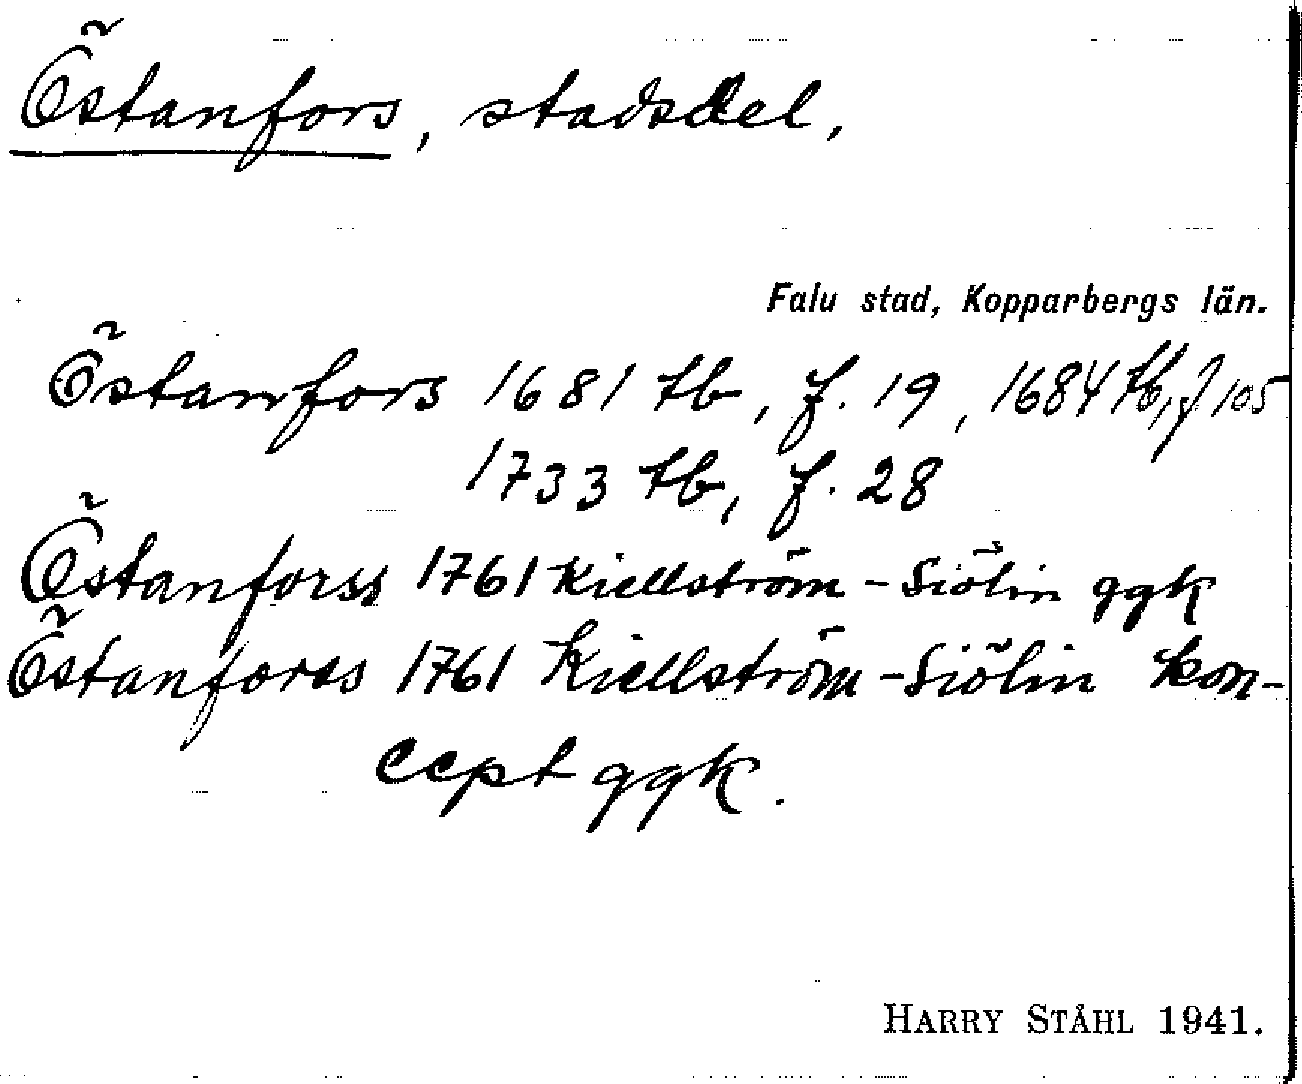 Östanfors, stadsdel,
Falu stad, Kopparbergs län.
Östanfors 1681 tb, f. 19, 1684 tb, f 105
1733 tb, f. 28
Östanforss 1761 Kiellström-Siölin ggk
Östanforss 1761 Kiellström-Siölin kon-
cept ggk.
HARRY STÅHL 1941.